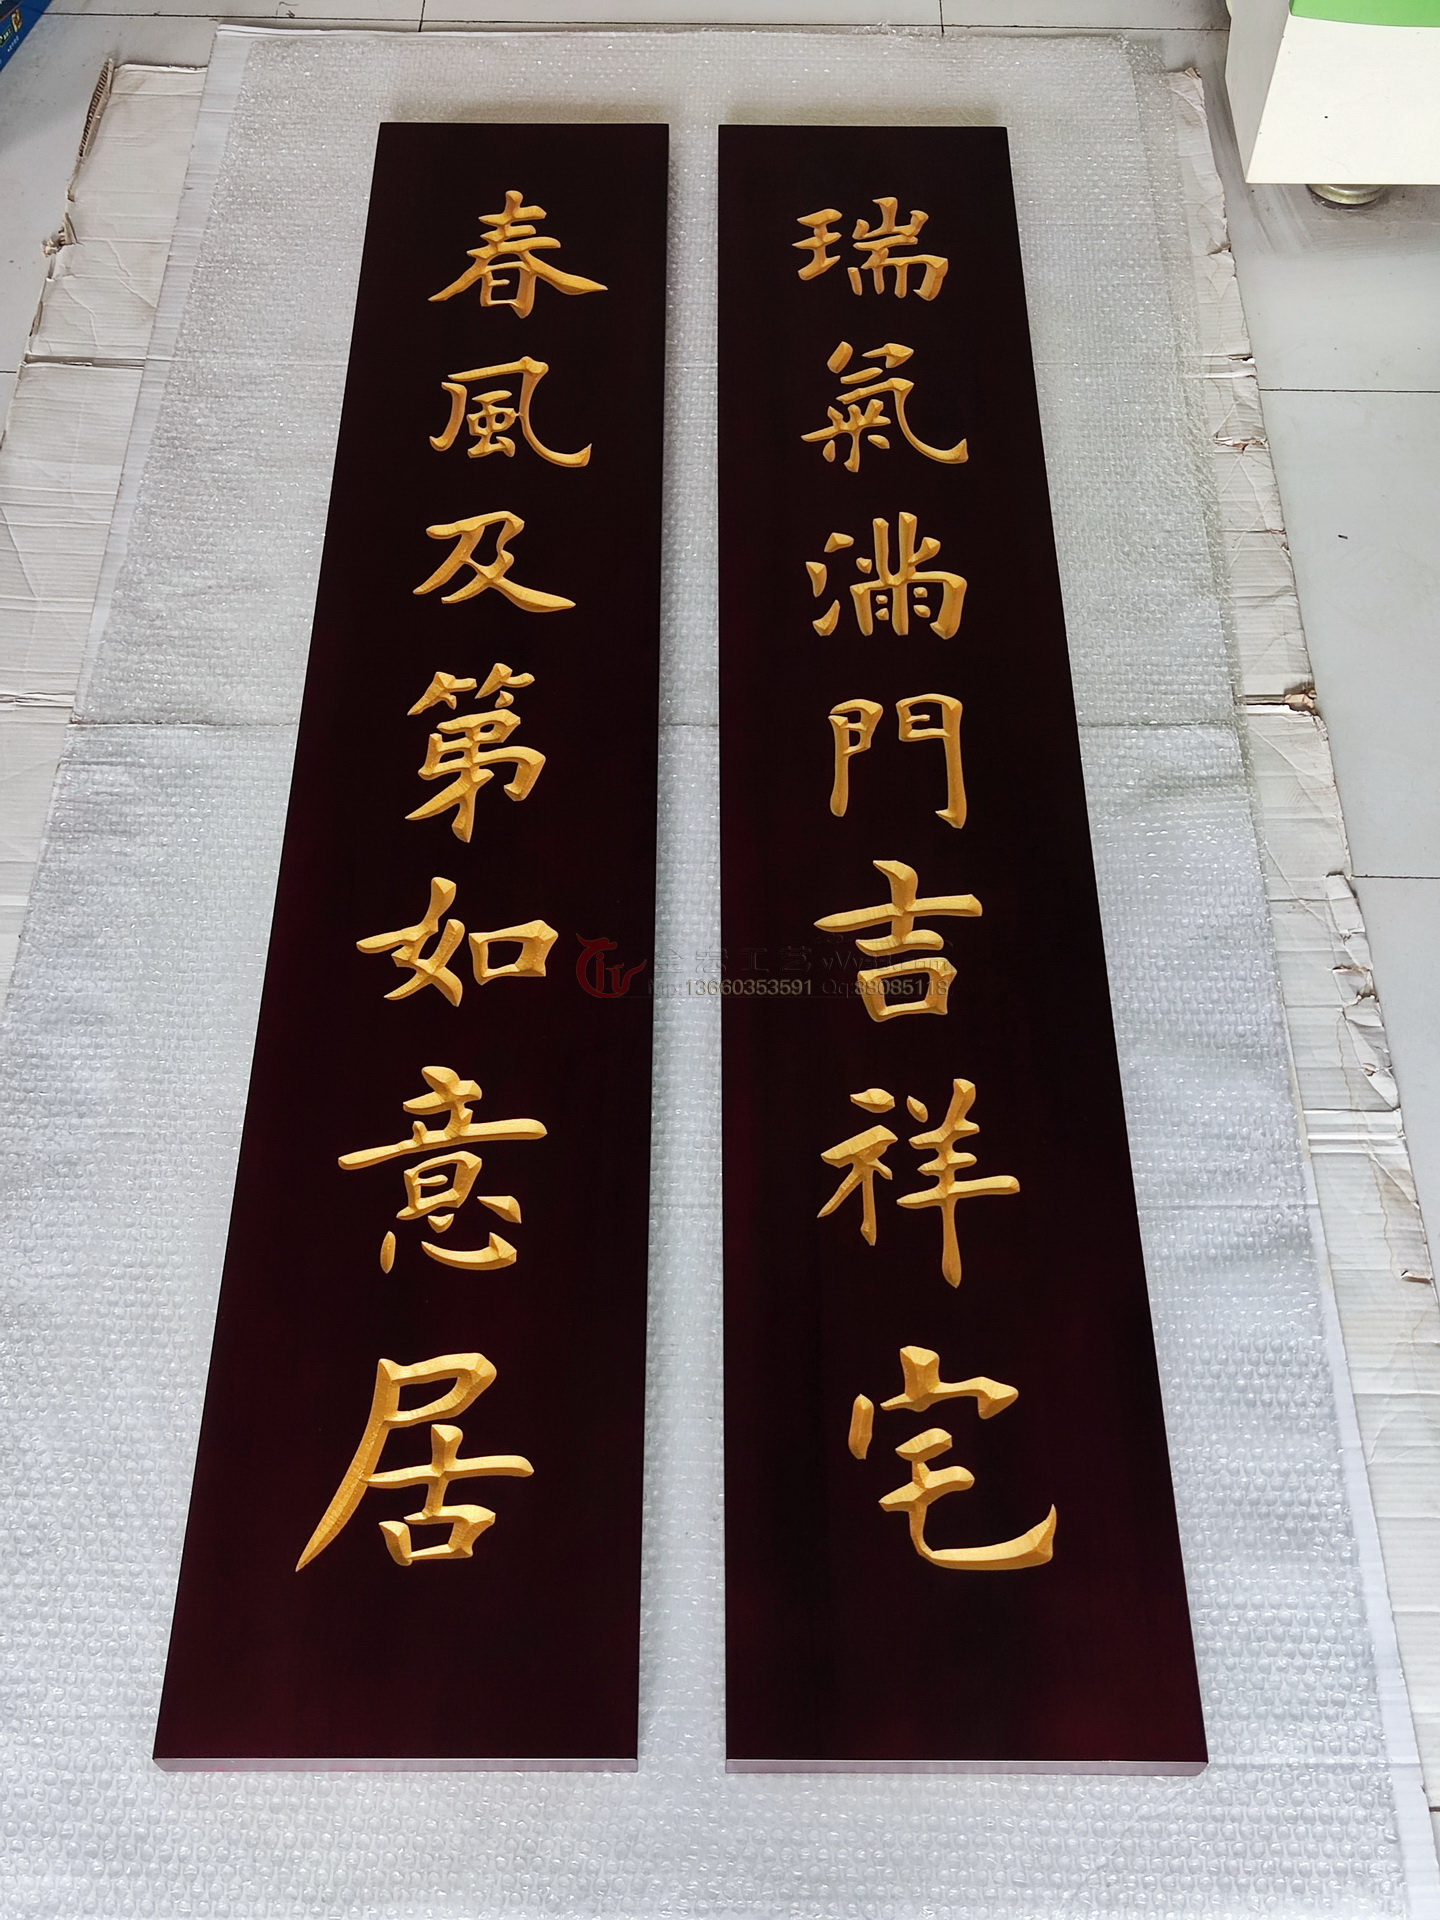 瑞氣滿門吉祥宅
春風及第如意居
13660353591 Qq:88085118